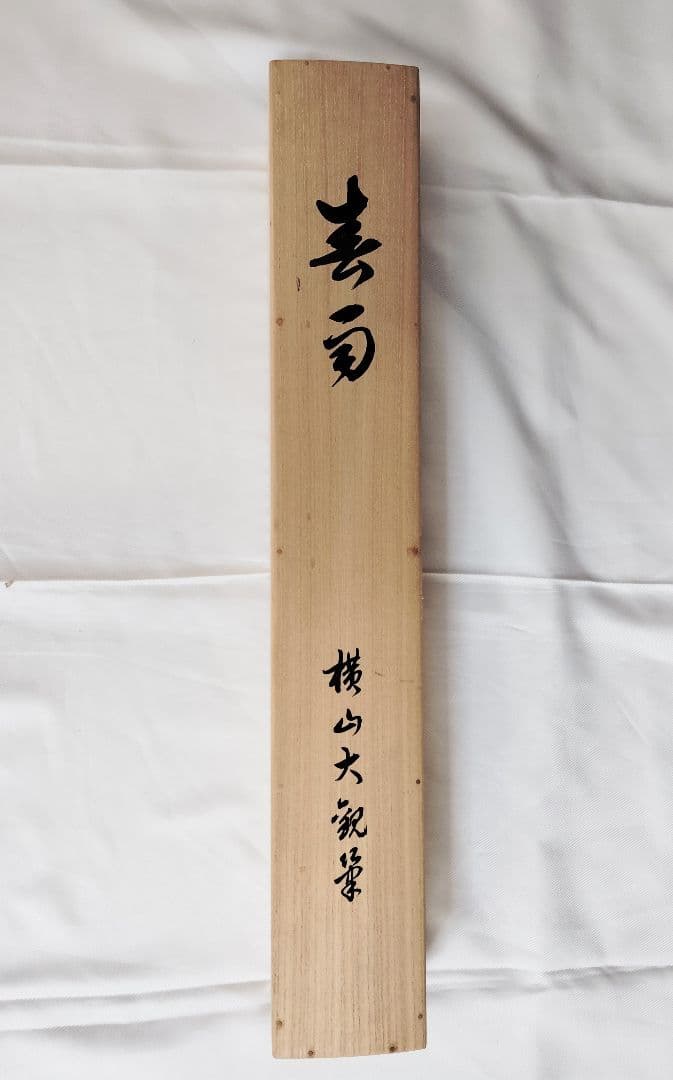 春雨
横山大観筆